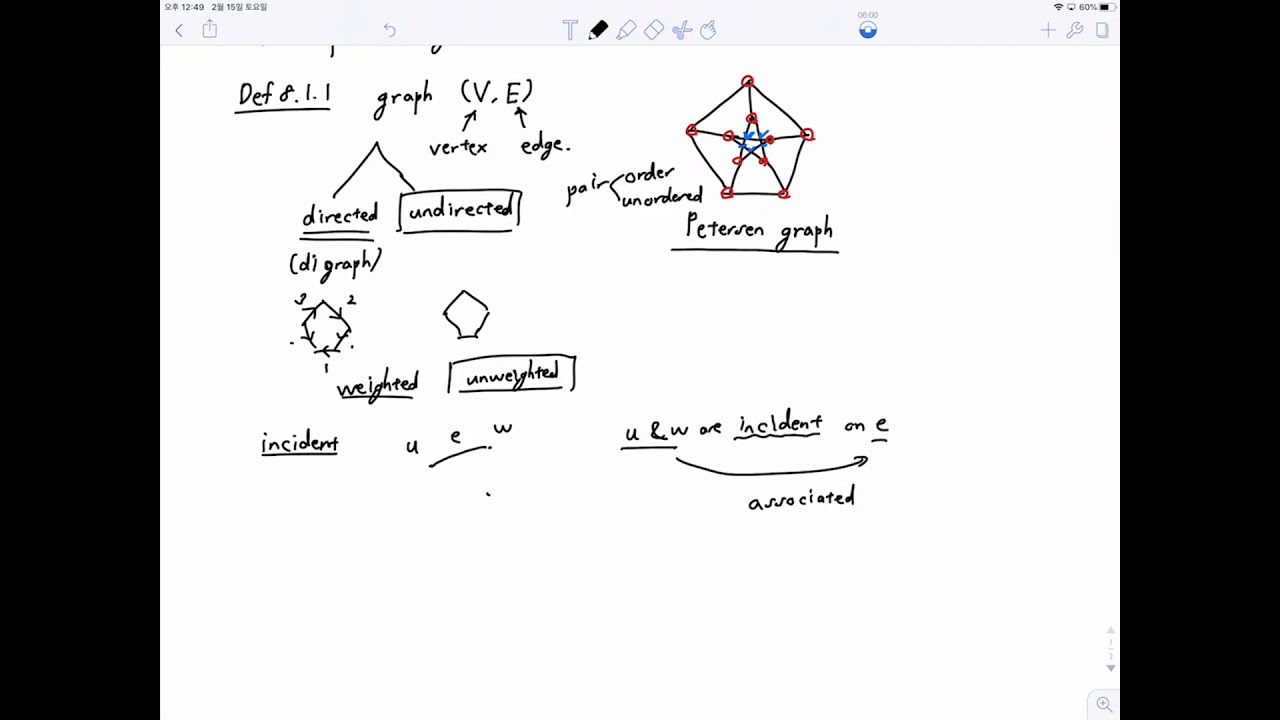 오후 12:49 2월 15일 토요일
60%
06:00
Def 8.1.1 graph (V, E)
vertex edge.
pair order
unordered
directed undirected
(digraph)
Petersen graph
3 2
1
weighted unweighted
incident u e w
u & w are incident on e
associated
1
2